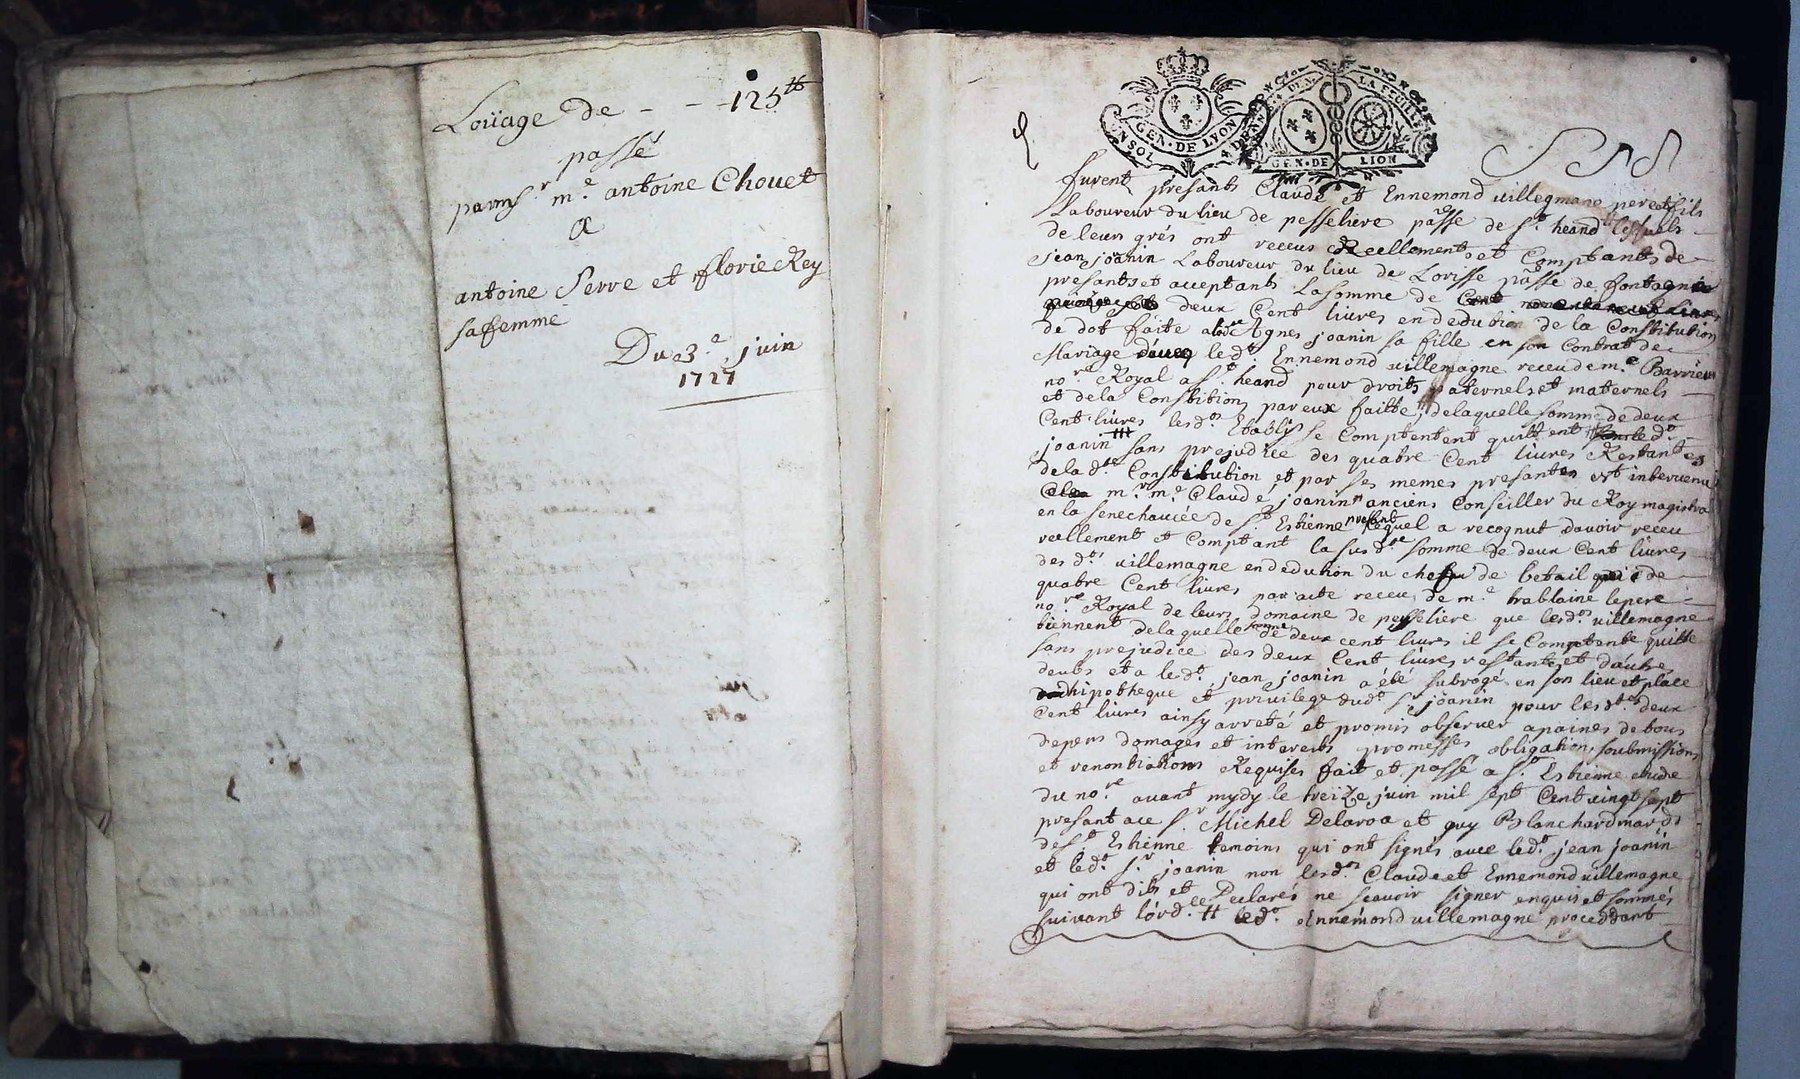 Loüage de - - - 125tt
passé
par msr me antoine Chouet
a
antoine Serre et florie Rey
sa femme
Du 3e juin
1727
GEN · DE LYON
LA FEUILLE
GEN · DE LION
furent presants Claude et Ennemond villemagne pere et fils
Laboureur du lieu de pesseliere psse de st heand lesquels
de leurs grés ont receus Reellement et Comptants de
jean joanin Laboureur du lieu de Lorisse psse de fontagnie
presants et acceptant La somme de
deux Cent livres en dedution de la Constitution
de dot faite a Agnes joanin sa fille en son Contrat de
Mariage avec led. Ennemond villemagne receu de me Barrieu
nore Royal a st heand pour droits paternels et maternels
et de la Constitution par eux faitte, de laquelle somme de deux
Cent livres lesd. Etablis se Comptentent quittent led.
joanin sans prejudice des quatre Cent livres Restantes
de la d. Constitution et par ses memes presantes est intervenu
mr me Claude joanin anciens Conseiller du Roy magistra
en la senechaucée de st Estienne present lequel a recognut davoir receu
reellement et Comptant la susd. somme de deux Cent livres
des d. villemagne en dedution du cheptu de betail de
quatre Cent livres par acte receu de me trablaine le pere
nore Royal de leurs domaine de pesseliere que lesd. villemagne
tiennent de laquelle somme de deux cent livres il se Comptente quitte
sans prejudice des deux Cent livres restantes et dautres
deubs et a led. jean joanin a été subrogé en son lieu et place
hipotheque et privilege dud. sr joanin pour lesd. deux
Cent livres ainsy arreté et promis observer a paines de tous
depens domages et interets promesses obligations soubmissions
et renontiations Requises fait et passé a st Estienne etude
du nore avant mydy le treize juin mil sept Cent vingt sept
presant a ce sr Michel Delaroa et guy Blanchard mards
de st Estienne temoins qui ont signés avec led. jean joanin
et led. sr joanin non lesd. Claude et Ennemond villemagne
qui ont dits et Declarés ne scavoir signer enquis et sommés
suivant lord.ce tt led. Ennemond villemagne proceddant